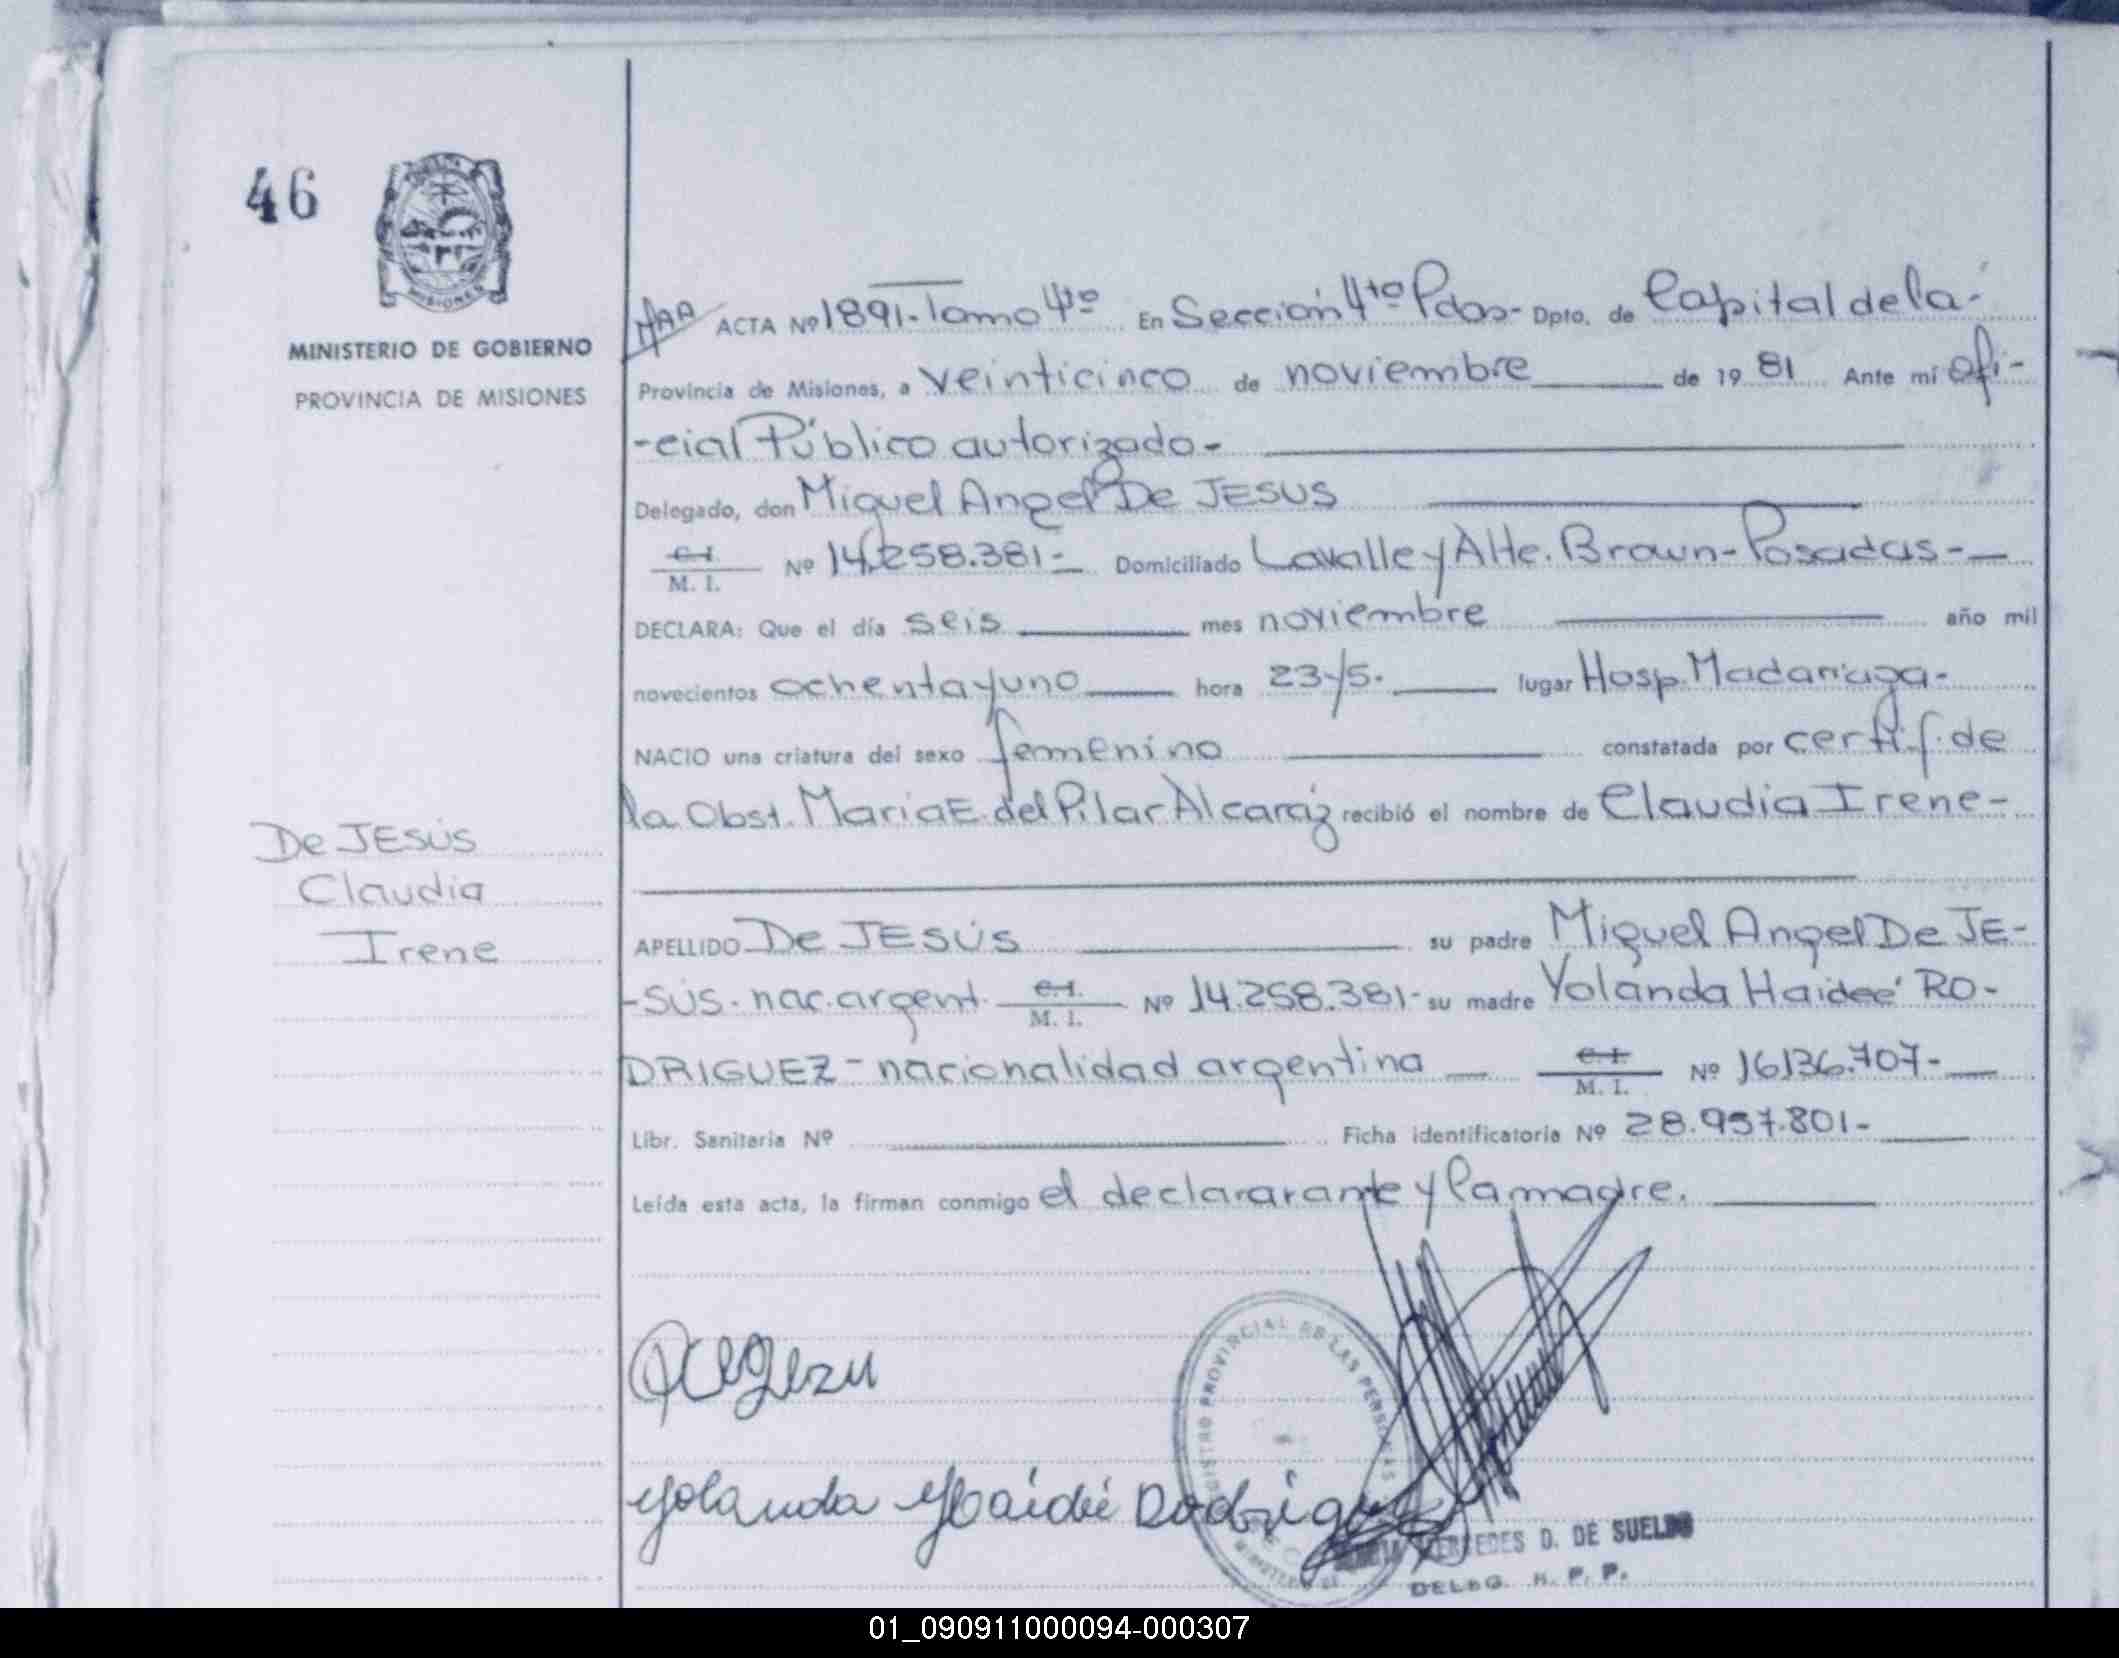 46
MINISTERIO DE GOBIERNO
PROVINCIA DE MISIONES
ACTA Nº 1891-Tomo 4to En Sección 4to Pdas- Dpto. de Capital de la-
Provincia de Misiones, a veinticinco de noviembre de 19 81 Ante mí Ofi-
-cial Público autorizado-
Delegado, don Miguel Angel De JESUS
C.I. M. I. Nº 14.258.381- Domiciliado Lavalle y Alte. Brown-Posadas-
DECLARA: Que el día seis mes noviembre año mil
novecientos ochenta y uno hora 23y5. lugar Hosp. Madariaga-
NACIO una criatura del sexo femenino constatada por certif. de
la Obst. Maria E. del Pilar Alcaráz recibió el nombre de Claudia Irene-
De JESÚS
Claudia
Irene
APELLIDO De JESÚS su padre Miguel Angel De JE-
-SÚS- nac. argent. C.I. M. I. Nº 14.258.381- su madre Yolanda Haideé RO-
DRIGUEZ- nacionalidad argentina C.I. M. I. Nº 16136.707-
Libr. Sanitaria Nº Ficha identificatoria Nº 28.957.801-
Leída esta acta, la firman conmigo el declararante y la madre.
Yolanda Haideé Rodrigu
REGISTRO PROVINCIAL DE LAS PERSONAS
MERCEDES D. DE SUELDO
DELEG. R. P. P.
01_090911000094-000307